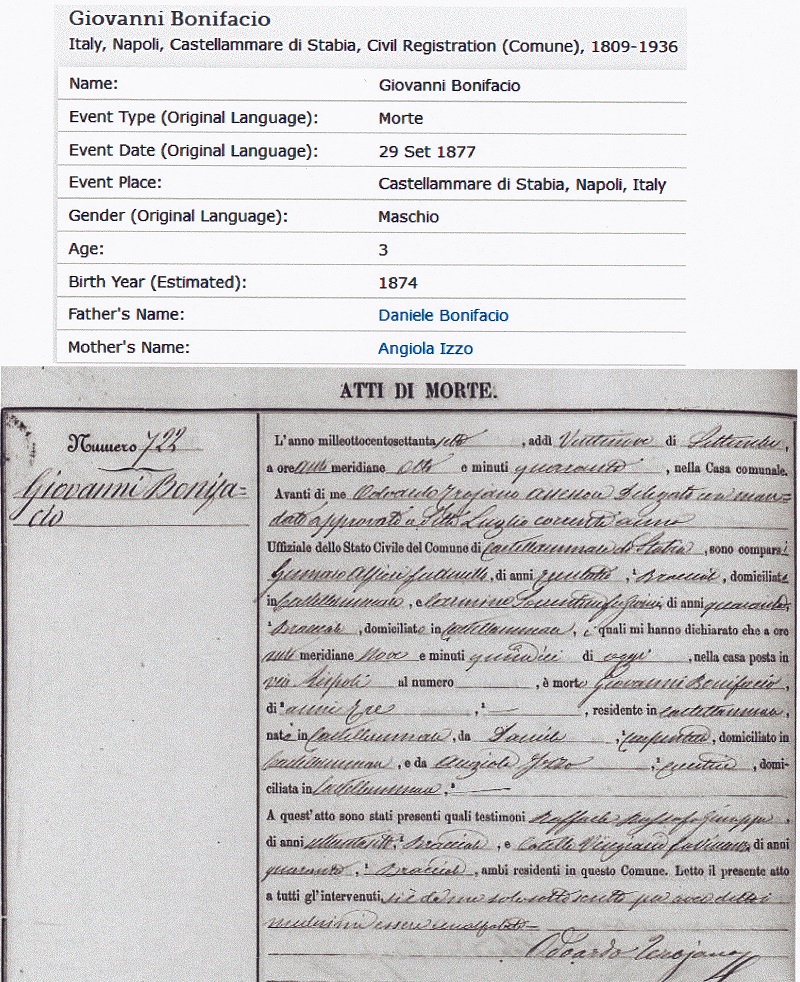 Giovanni Bonifacio
Italy, Napoli, Castellammare di Stabia, Civil Registration (Comune), 1809-1936
Name: Giovanni Bonifacio
Event Type (Original Language): Morte
Event Date (Original Language): 29 Set 1877
Event Place: Castellammare di Stabia, Napoli, Italy
Gender (Original Language): Maschio
Age: 3
Birth Year (Estimated): 1874
Father's Name: Daniele Bonifacio
Mother's Name: Angiola Izzo
ATTI DI MORTE.
Numero 722
Giovanni Bonifa=
cio
L'anno milleottocentosettantasette, addì Ventinove di Settembre,
a ore anti meridiane otto e minuti quaranta, nella Casa comunale.
Avanti di me Odoardo Trojano assessore Delegato con man=
dato approvato a Luglio corrente anno
Uffiziale dello Stato Civile del Comune di Castellammare di Stabia, sono comparsi
Gennaro, di anni, Bracciale, domiciliato
in Castellammare, e Carmine Sorrentino, di anni quaranta,
Bracciale, domiciliato in Castellammare, i quali mi hanno dichiarato che a ore
meridiane Nove e minuti quindici di oggi, nella casa posta in
via Rispoli al numero, è morto Giovanni Bonifacio,
di anni Tre, residente in Castellammare,
nato in Castellammare, da Daniele, domiciliato in
Castellammare, e da Angiola Izzo, domi-
ciliata in Castellammare,
A quest'atto sono stati presenti quali testimoni Raffaele Giuseppe,
di anni, Bracciale, e Catello di anni
quaranta, Bracciale, ambi residenti in questo Comune. Letto il presente atto
a tutti gl'intervenuti, si è da me solo sottoscritto per aver detto i
medesimi essere analfabeti=
Odoardo Trojano